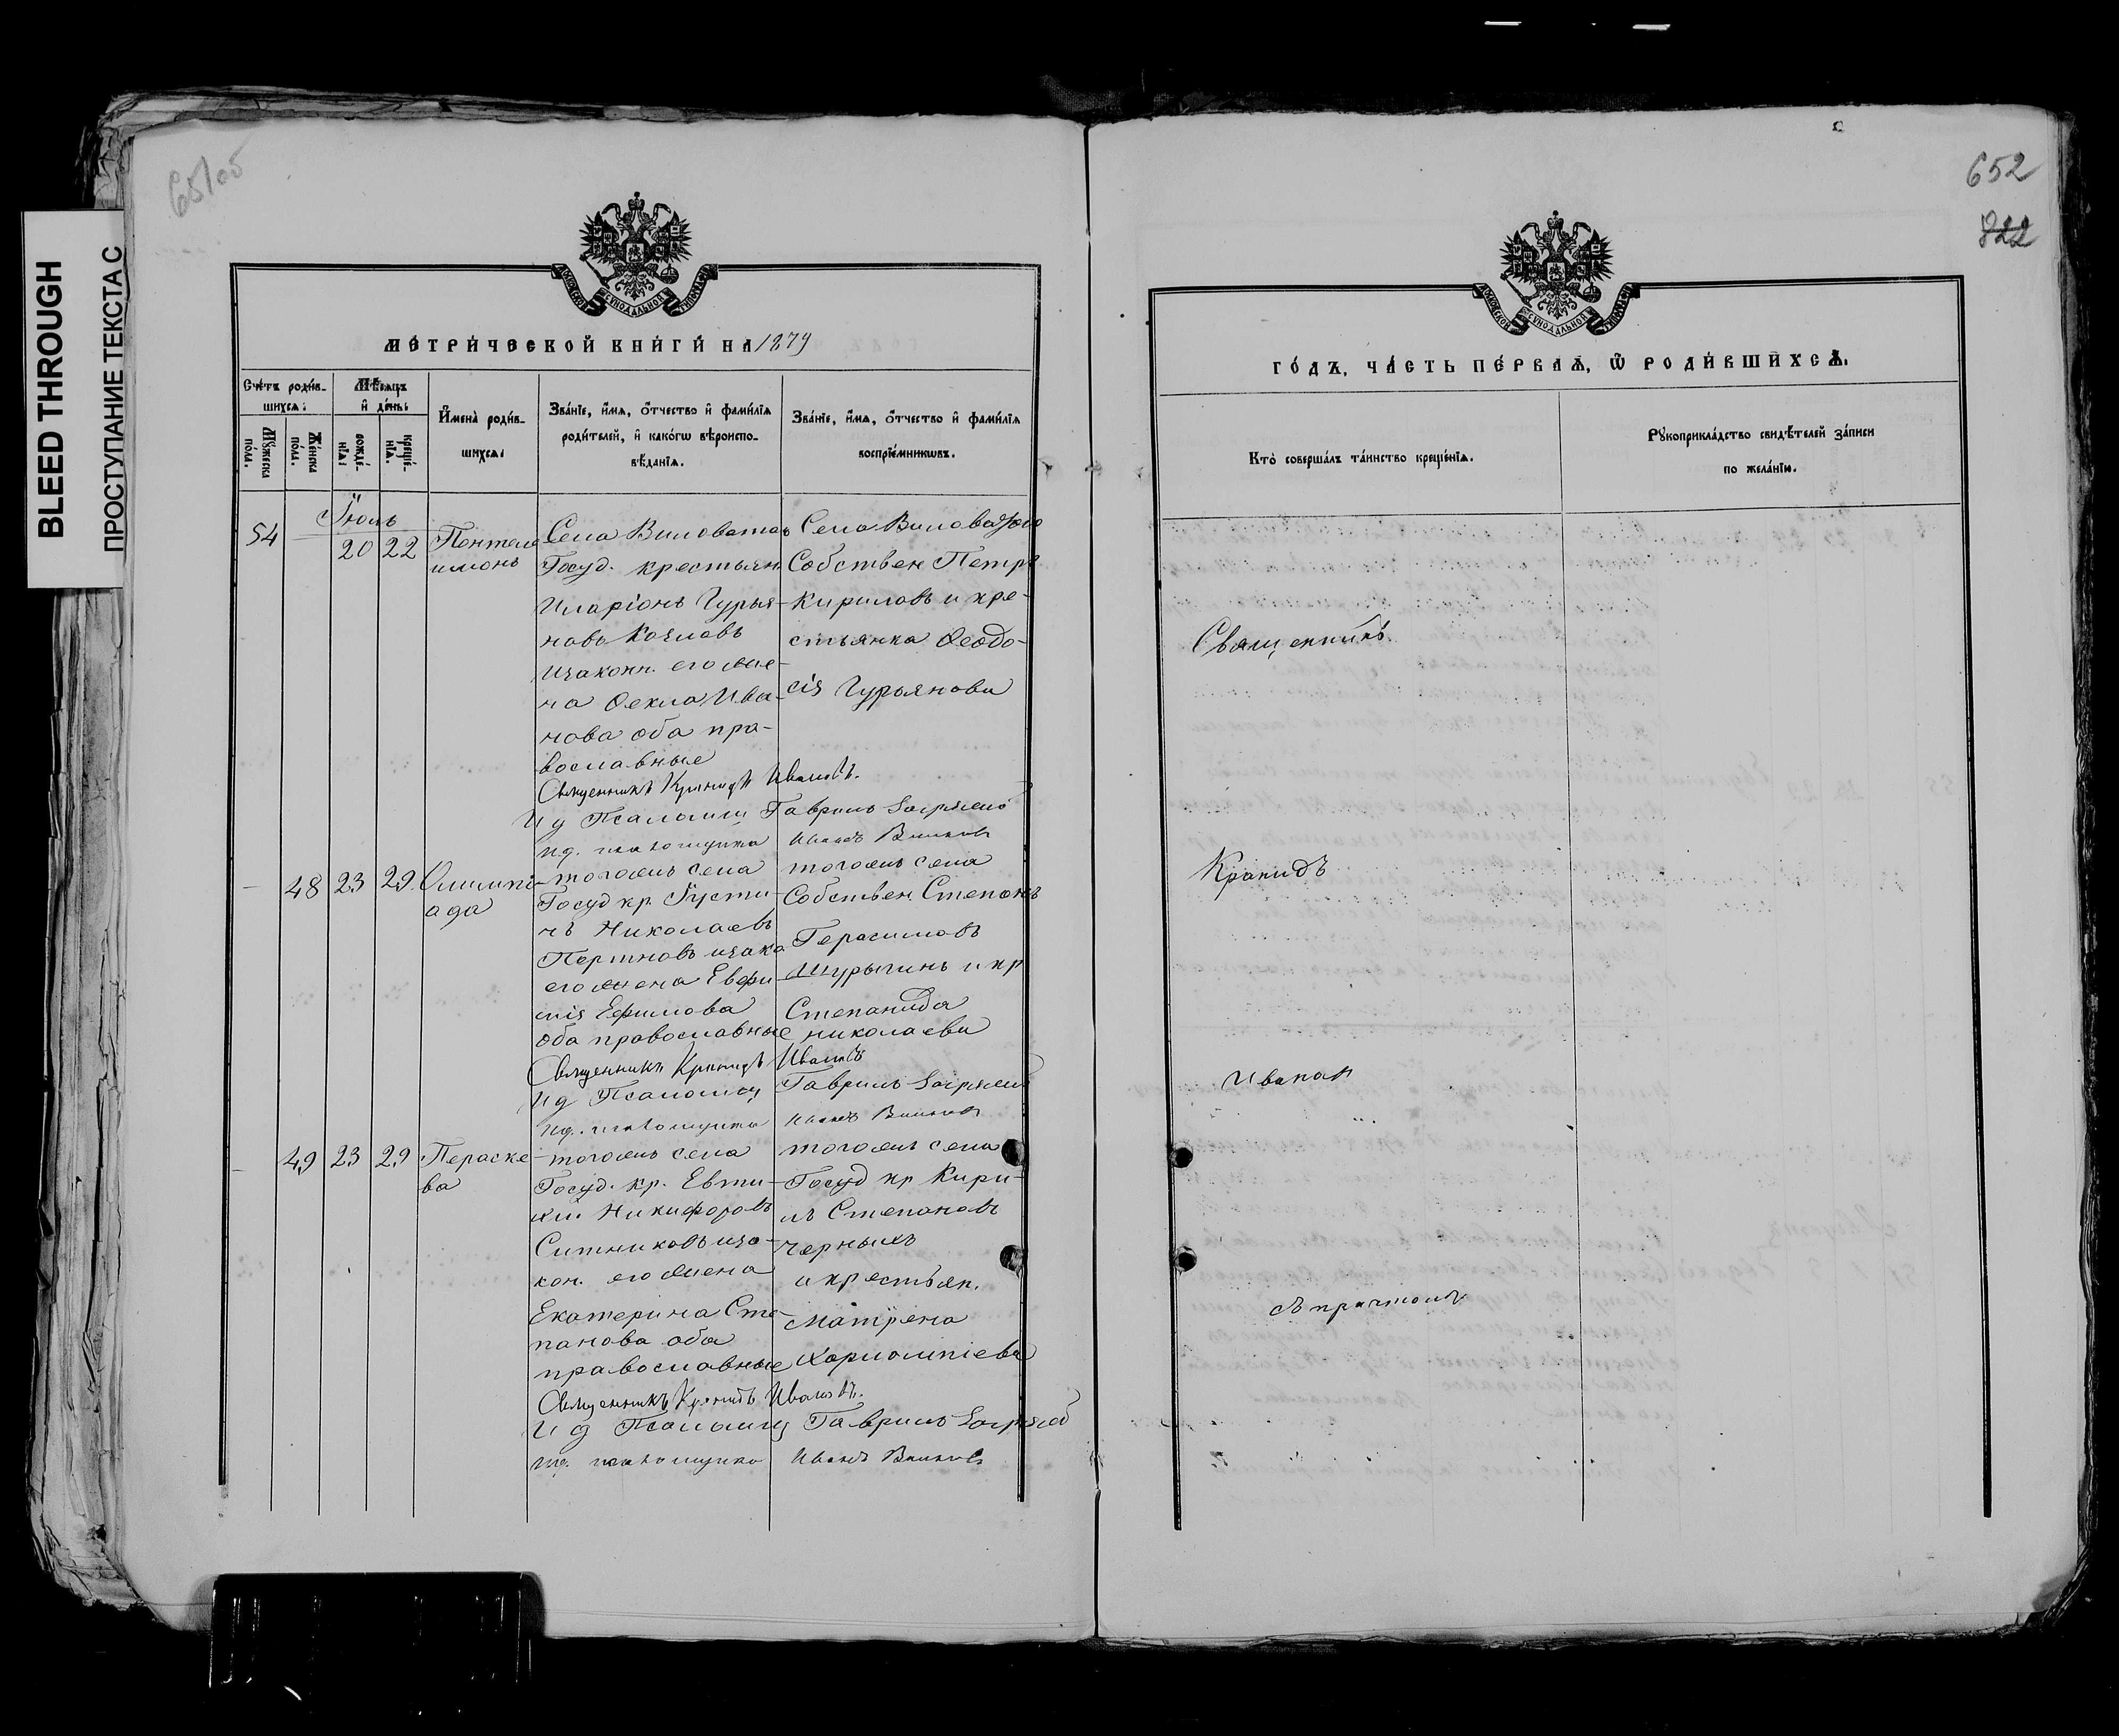 BLEED THROUGH
ПРОСТУПАНИЕ ТЕКСТА С
652
822
МЕТРИЧЕСКОЙ КНИГИ НА 1879
Счетъ родив-
шихся:
Мужеска пола.
Женска пола.
Мѣсяцъ
и день:
рожде-
нія:
креще-
нія.
Имена родив-
шихся:
Званіе, имя, отчество и фамилія
родителей, и какогѡ вѣроиспо-
вѣданія.
Званіе, имя, отчество и фамилія
воспріемниковъ.
Іюль
54
20
22
Пентеле
имонъ
Села Виловатаго
Госуд. крестьян.
Иларіонъ Гурья-
новъ Козловъ
изаконн. его же-
на Ѳекла Ива-
нова оба пра-
вославные
Села Виловатого
Собствен Петръ
Кириловъ и кре-
стьянка Ѳеодо-
сія Гурьянова
Священникъ Кронидъ Ивановъ.
И д Псаломщ Гавриилъ
ид. псаломщика Иванъ
48
23
29
Олимпі-
ада
тогожъ села
Госуд кр. Іусти-
нъ Николаевъ
изако
его жена Евфи-
мія Ефимова
оба православные
тогожъ села
Собствен. Степанъ
Герасимовъ
Шурыгинъ и кр
Степанида
николаева
Священникъ Кронидъ Ивановъ
И д Псаломщ Гавриилъ
ид. псаломщика Иванъ
49
23
29
Параске
ва
тогожъ села
Госуд. кр. Евти-
хій Никифоровъ
Ситниковъ иза-
кон. его жена
Екатерина Сте-
панова оба
православные
тогожъ села
Госуд кр Кири-
лъ Степановъ
Черныхъ
и крестьян.
Матрена
Харлампіева
Священникъ Кронидъ Ивановъ.
И д Псаломщ Гавриилъ
ид. псаломщика Иванъ
ГОДЪ, ЧАСТЬ ПЕРВАЯ, Ѡ РОДИВШИХСЯ.
Кто совершалъ таинство крещенія.
Рукоприкладство свидѣтелей записи
по желанію.
Священникъ
Кронидъ
Ивановъ
съ причтомъ